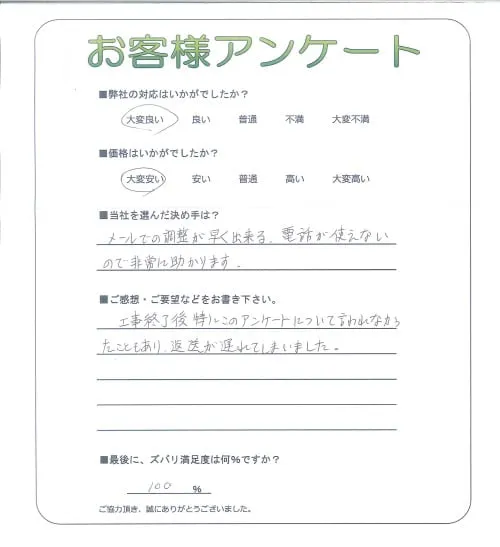 お客様アンケート
■弊社の対応はいかがでしたか？
大変良い 良い 普通 不満 大変不満
■価格はいかがでしたか？
大変安い 安い 普通 高い 大変高い
■当社を選んだ決め手は？
メールでの調整が早く出来る、電話が使えない
ので非常に助かります。
■ご感想・ご要望などをお書き下さい。
工事終了後特にこのアンケートについて言われなかっ
たこともあり、返送が遅れてしまいました。
■最後に、ズバリ満足度は何％ですか？
100 ％
ご協力頂き、誠にありがとうございました。